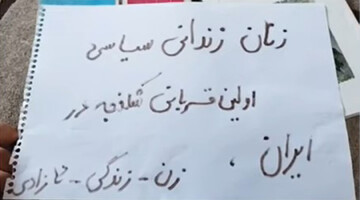 زنان زندانی سیاسی
اولین قربانی شکنجه در
ایران ،
زن - زندگی - آزادی